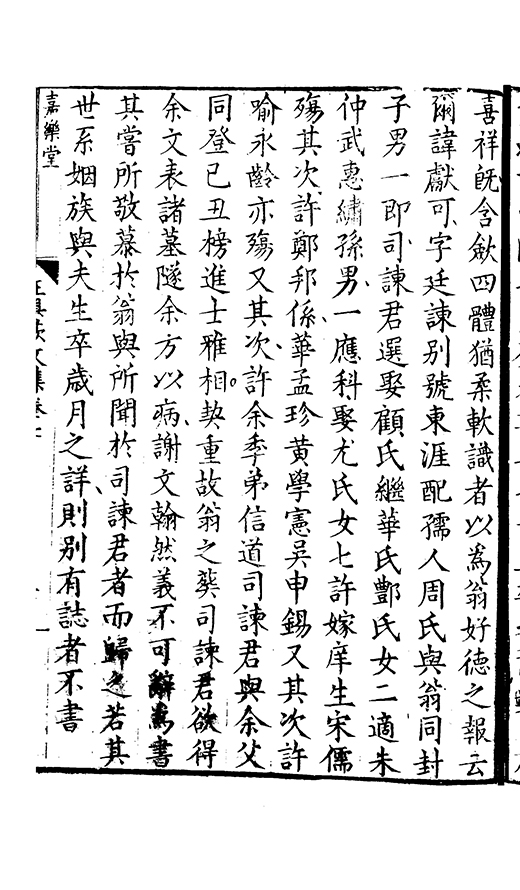 喜祥既含歛四體猶柔軟識者以爲翁好德之報云
爾諱獻可字廷諫别號東涯配孺人周氏與翁同封
子男一即司諫君選娶顧氏繼華氏酆氏女二適朱
仲武惠繡孫男一應科娶尤氏女七許嫁庠生宋儒
殤其次許鄭邦係華孟珍黄學憲吳申錫又其次許
喻永齡亦殤又其次許余季弟信道司諫君與余父
同登己丑榜進士雅相契重故翁之葬司諫君欲得
余文表諸墓隧余方以病謝文翰然義不可辭爲書
其嘗所敬慕於翁與所聞於司諫君者而歸之若其
世系姻族與夫生卒歲月之詳則别有誌者不書
嘉樂堂
文集卷